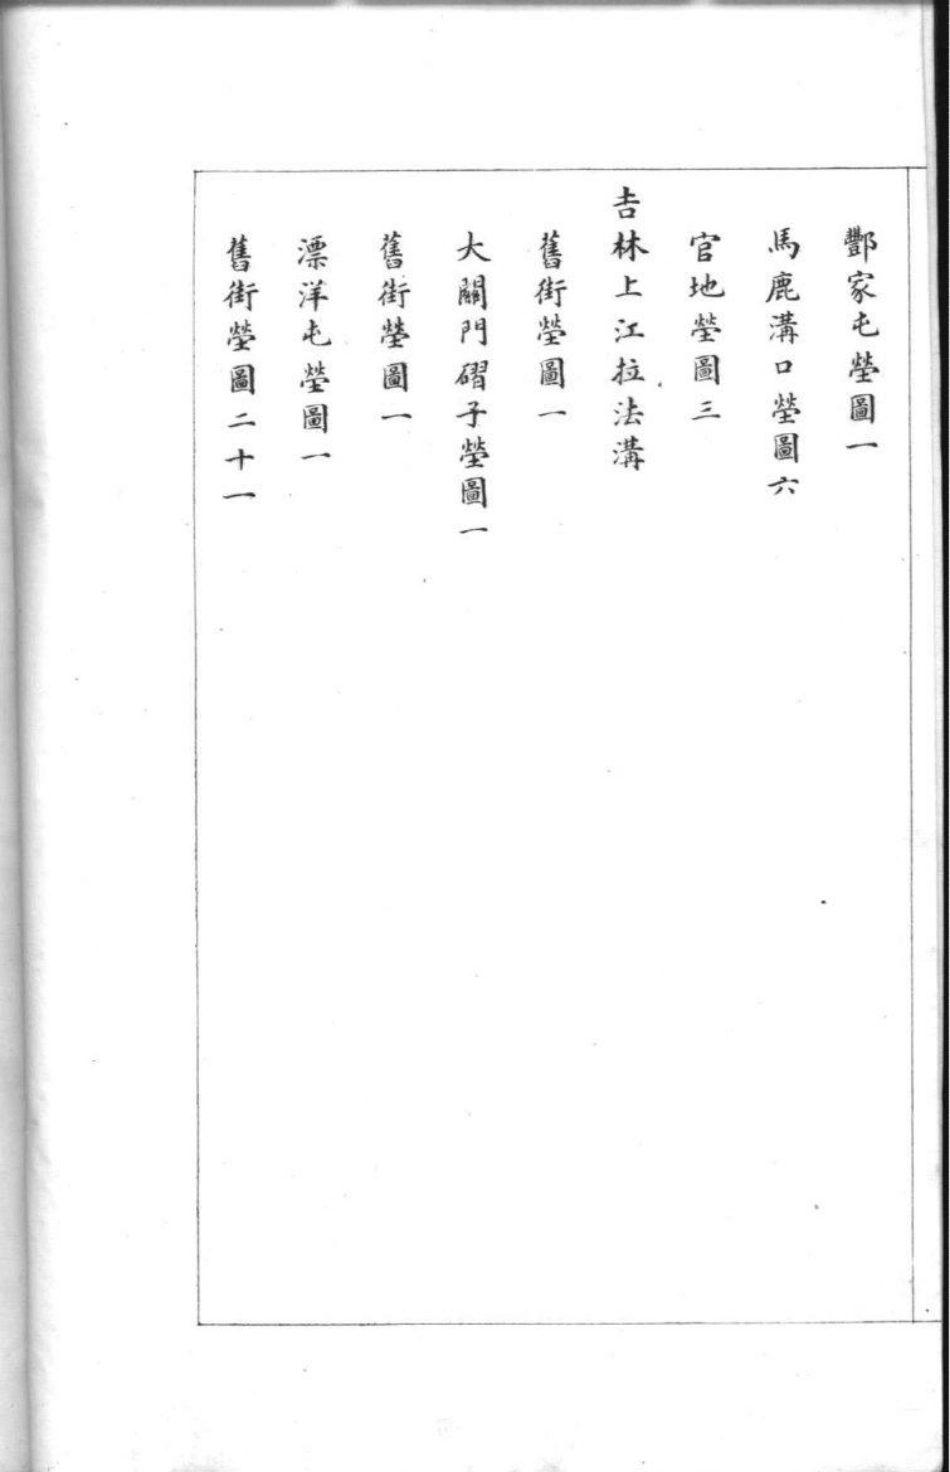 酆家屯塋圖一
馬鹿溝口塋圖六
官地塋圖三
吉林上江拉法溝
舊街塋圖一
大關門磖子塋圖一
舊街塋圖一
漂洋屯塋圖一
舊街塋圖二十一